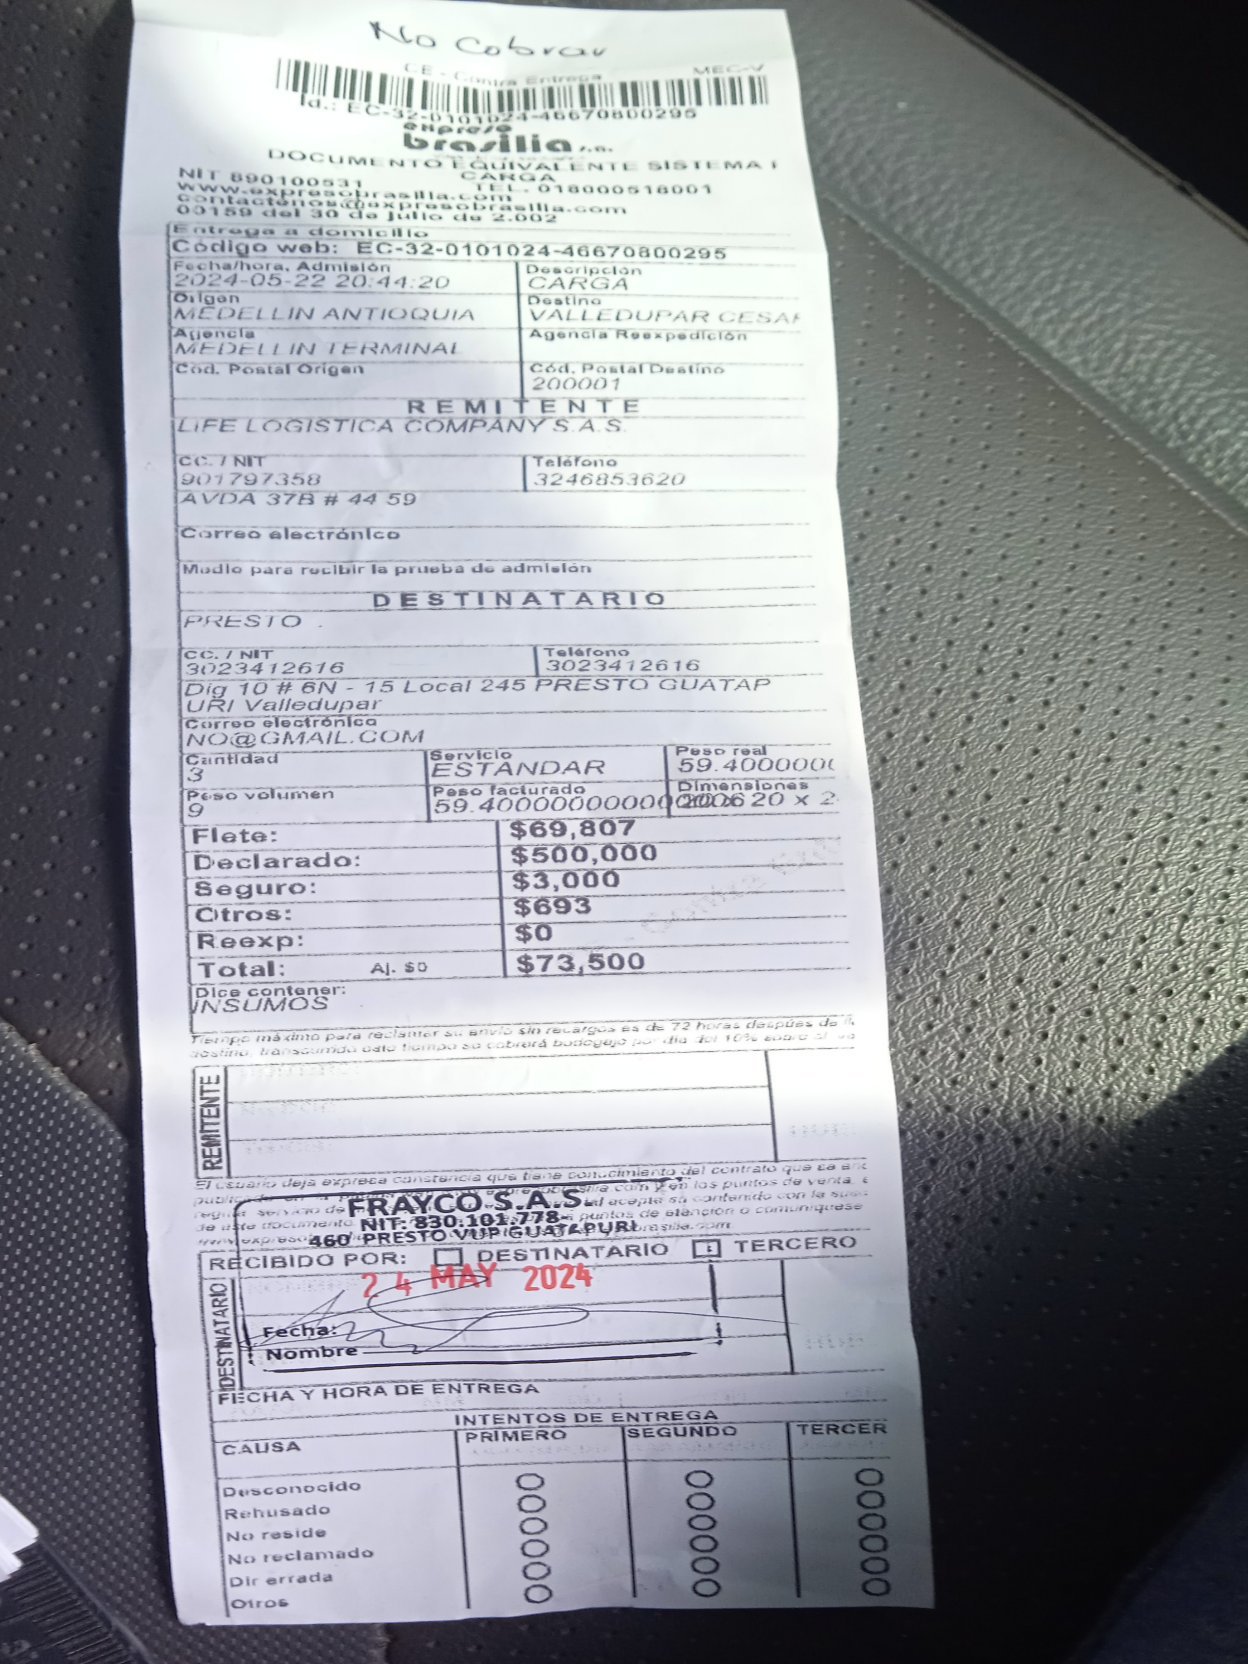 No Cobrar
CE - Contra Entrega MEC-V
Id.: EC-32-0101024-46670800295
expreso
brasilia s.a.
DOCUMENTO EQUIVALENTE SISTEMA
CARGA
NIT 890100531 TEL. 018000518001
www.expresobrasilia.com
contactenos@expresobrasilia.com
00159 del 30 de julio de 2.002
Entrega a domicilio
Código web: EC-32-0101024-46670800295
Fecha/hora. Admisión Descripción
2024-05-22 20:44:20 CARGA
Origen Destino
MEDELLIN ANTIOQUIA VALLEDUPAR CESAR
Agencia Agencia Reexpedición
MEDELLIN TERMINAL
Cód. Postal Origen Cód. Postal Destino
200001
REMITENTE
LIFE LOGISTICA COMPANY S.A.S.
CC. / NIT Teléfono
901797358 3246853620
AVDA 37B # 44 59
Correo electrónico
Medio para recibir la prueba de admisión
DESTINATARIO
PRESTO .
CC. / NIT Teléfono
3023412616 3023412616
Dig 10 # 6N - 15 Local 245 PRESTO GUATAP
URI Valledupar
Correo electrónico
NO@GMAIL.COM
Cantidad Servicio Peso real
3 ESTANDAR 59.4000000
Peso volumen Peso facturado Dimensiones
9 59.40000000000 20 x 2
Flete: $69,807
Declarado: $500,000
Seguro: $3,000
Otros: $693
Reexp: $0
Total: Aj. $0 $73,500
Dice contener:
INSUMOS
Tiempo máximo para reclamar su envío sin recargos es de 72 horas después de
destino, transcurrido este tiempo se cobrará bodegaje por día del 10% sobre el
REMITENTE
El usuario deja expresa constancia que tiene conocimiento del contrato que se
FRAYCO S.A.S.
NIT: 830.101.778-
460 PRESTO VUP GUATAPURI
RECIBIDO POR: DESTINATARIO TERCERO
24 MAY 2024
DESTINATARIO
Fecha:
Nombre
FECHA Y HORA DE ENTREGA
INTENTOS DE ENTREGA
CAUSA PRIMERO SEGUNDO TERCER
Desconocido
Rehusado
No reside
No reclamado
Dir errada
Otros